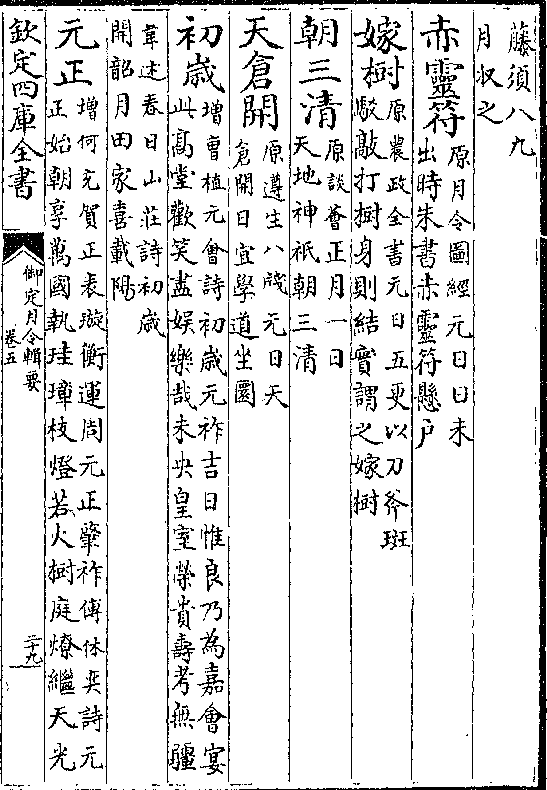 藤須八九
月收之
赤靈符
原月令圖經元日日未
出時朱書赤靈符懸戶
嫁樹
原農政全書元日五更以刀斧斑
駁敲打樹身則結實謂之嫁樹
朝三清
原談薈正月一日
天地神祇朝三清
天倉開
原遵生八牋元日天
倉開日宜學道坐圜
初歳
增曹植元會詩初歳元祚吉日惟良乃為嘉會宴
此高堂歡笑盡娛樂哉未央皇室榮貴壽考無疆
韋述春日山莊詩初歳
開韶月田家喜載陽
元正
增何充賀正表璇衡運周元正肇祚傅休奕詩元
正始朝享萬國執珪璋枝燈若火樹庭燎繼天光
欽定四庫全書
御定月令輯要
卷五
二十九